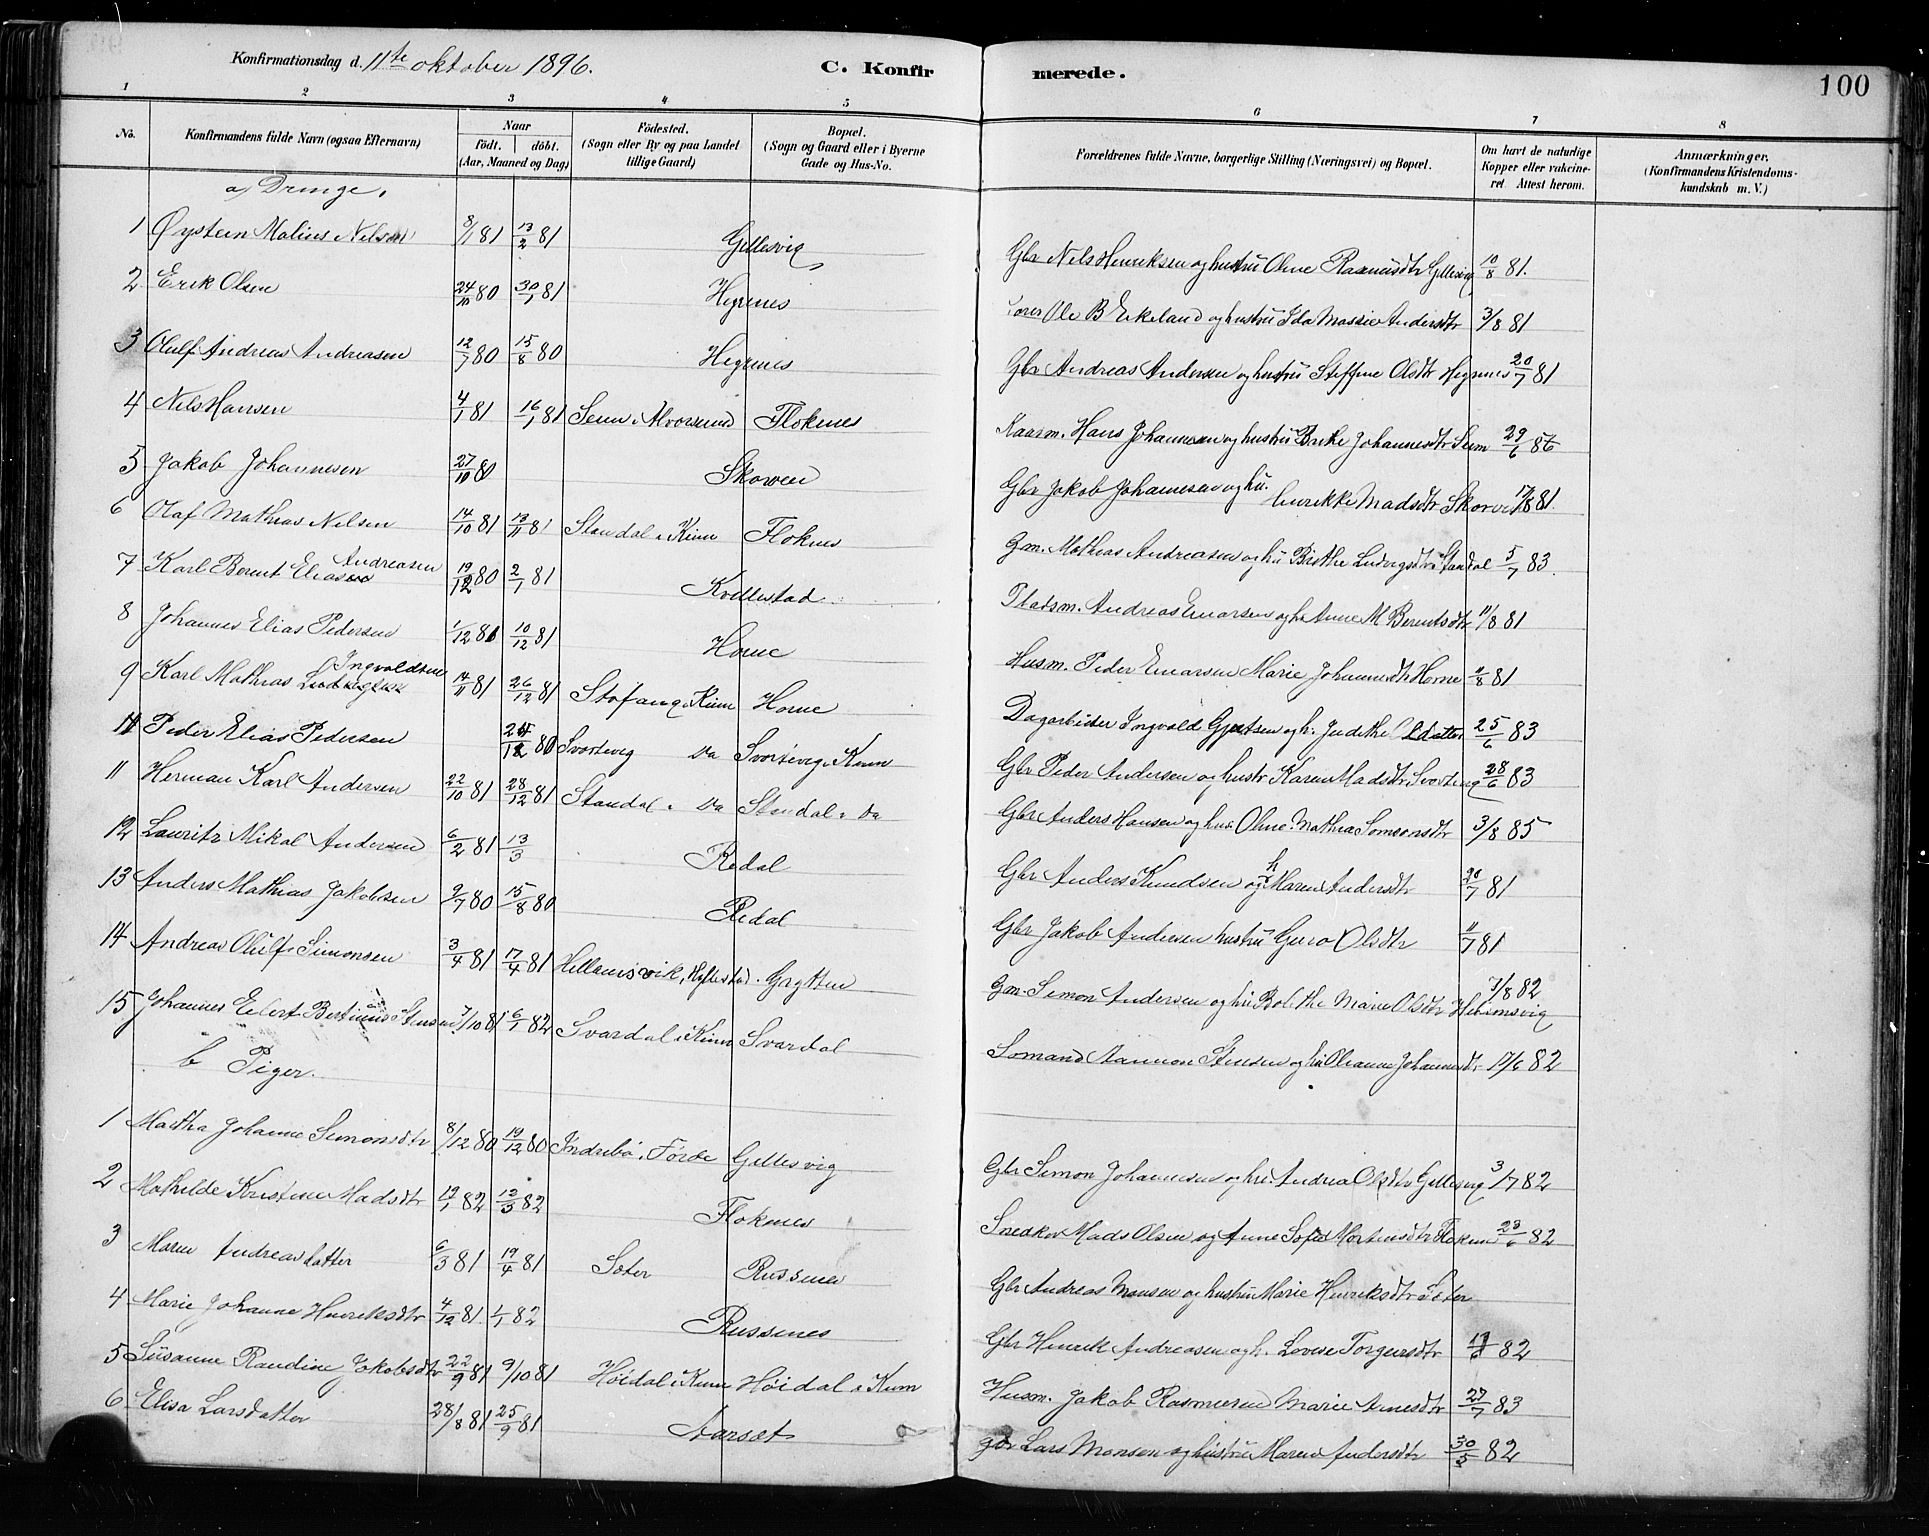 Konfirmationsdag d. 11te oktober 1896.
C. Konfirmerede.
100
1 2 3 4 5 6 7 8
No.
Konfirmandens fulde Navn (ogsaa Efternavn)
Naar
födt. döbt.
(Aar, Maaned og Dag)
Födested.
(Sogn eller By og paa Landet
tillige Gaard)
Bopæl.
(Sogn og Gaard eller i Byerne
Gade og Hus-No.
Forældrenes fulde Navne, borgerlige Stilling (Næringsvei) og Bopæl.
Om havt de naturlige
Kopper eller vakcine-
ret Attest herom.
Anmærkninger.
(Konfirmandens Kristendoms-
kundskab m. V.)
a) Drenge.
1 Øystein Malius Nilsen 8/1 81 13/2 81 Gellesvig Gbr Nils Henriksen og hustru Oline Rasmusdtr Gellesvig 10/8 81.
2 Erik Olsen 24/10 80 30/1 81 Hegrenes Ole B Eikeland og hustru Ida Andersdtr 3/8 81
3 Olulf Andreas Andreasen 12/7 80 15/8 80 Hegrenes Gbr Andreas Andersen og hustru Steffine Olsdtr Hegrenes 20/7 81
4 Nils Hansen 4/1 81 16/1 81 Seim i Alversund Flokenes Kaarm. Hans Johannesen og hustru Brithe Johannesdtr Seim 29/6 86
5 Jakob Johannesen 27/10 80 Skorven Gbr Jakob Johannesen og hu. Henrikke Madsdtr Skorven 17/8 81.
6 Olaf Mathias Nilsen 14/10 81 13/11 81 Standal i Kinn Floknes Gm. Mathias Andreasen og hu Birthe Ludvigsdtr Standal 5/7 83.
7 Karl Berent Eliasen Andreasen 19/12 80 2/1 81 Kvellestad Pladsm. Andreas Einarsen og h. Anne M Berentsdtr 11/8 81
8 Johannes Elias Pedersen 1/12 81 10/12 81 Horne Husm. Peder Einarsen Marie Johannesdtr Horne 11/8 81
9 Karl Mathias Ludvigsen Ingvaldsen 14/11 81 26/12 81 Stafang i Kinn Horne Dagarbeider Ingvald Gjertsen og h. Judithe Olsdatter 25/6 83
10 Peder Elias Pedersen 12 80 Svortevig Do Svortevig i Kinn Gbr Peder Andersen og hustr Karen Madsdtr Svortevig 28/6 83
11 Herman Karl Andersen 22/10 81 28/12 81 Standal i Do Standal i Do Gbr Anders Hansen og hus. Oline Mathea Samsonsdtr 3/8 85
12 Lauritz Mikal Andersen 6/2 81 13/3 Redal Gbr Anders Knudsen og h Maren Andersdtr 20/7 81
13 Anders Mathias Jakobsen 9/7 80 15/8 80 Redal Gbr Jakob Andersen hustru Guro Olsdtr 11/7 81
14 Andreas Olulf Simonsen 3/4 81 17/4 81 Hellemsvik, Grytten Gm. Simon Andersen og hu Bolethe Marie Olsdtr 7/8 82
15 Johannes Eilert Bertinius Stensen 7/10 81 6/1 82 Svardal i Kinn Svardal Sømand Aamon Stensen og hu Oleanne Johannesdtr 17/6 82
b Piger.
1 Martha Johanne Simonsdtr 8/12 80 19/12 80 Indrebø i Førde Gellesvig Gbr Simon Johannesen og hu. Andrea Olsdtr Gellesvig 3/7 82
2 Mathilde Kristine Madsdtr 19/1 82 12/3 82 Floknes Snedker Mads Olsen og Anne Sofie Mortensdtr Floknes 23/6 82
3 Maren Andreasdatter 6/3 81 19/4 81 Sæter Russenes Gbr Andreas Monsen og hustru Marie Henriksdtr Sæter
4 Marie Johanne Henriksdtr 4/12 81. 1/1 82 Russenes Gbr Henrik Andreasen og h. Lovise Torgersdtr 82
5 Susanne Randine Jakobsdtr 22/9 81 9/10 81 Høidal i Kinn Høidal i Kinn Husm. Jakob Rasmussen Marie Arnesdtr 27/7 83
6 Elisa Larsdatter 28/8 81 25/9 81 Aarset gbr Lars Monsen og hustru Maren Andersdtr 30/5 82